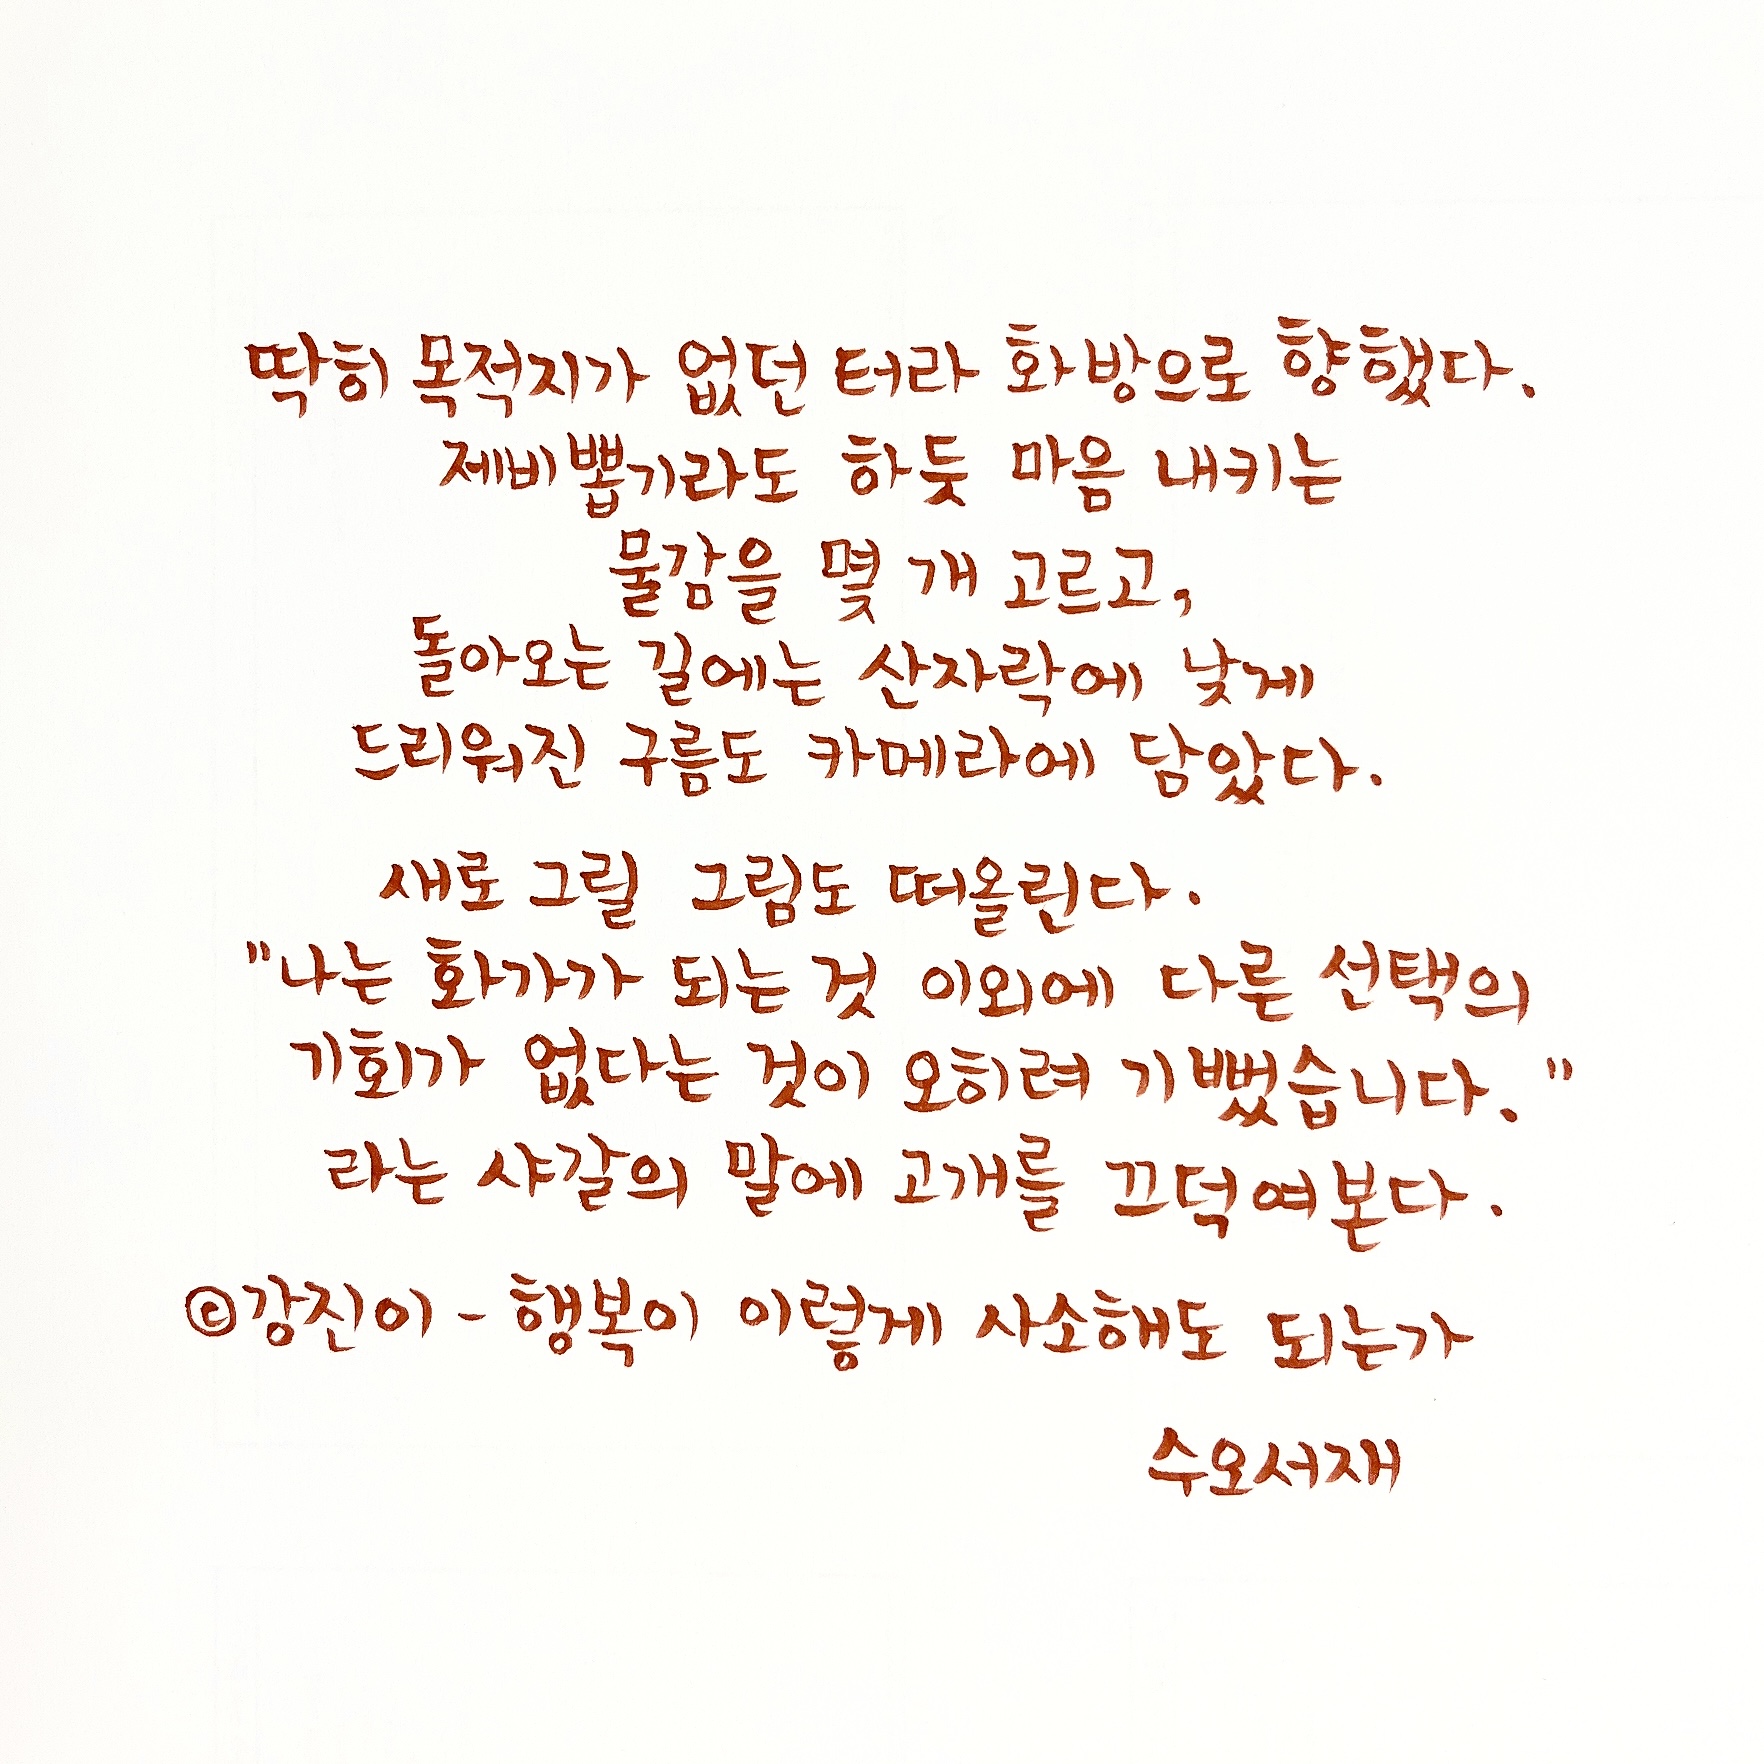 딱히 목적지가 없던 터라 화방으로 향했다.
제비뽑기라도 하듯 마음 내키는
물감을 몇 개 고르고,
돌아오는 길에는 산자락에 낮게
드리워진 구름도 카메라에 담았다.
새로 그릴 그림도 떠올린다.
"나는 화가가 되는 것 이외에 다른 선택의
기회가 없다는 것이 오히려 기뻤습니다."
라는 샤갈의 말에 고개를 끄덕여본다.
©강진이 - 행복이 이렇게 사소해도 되는가
수오서재